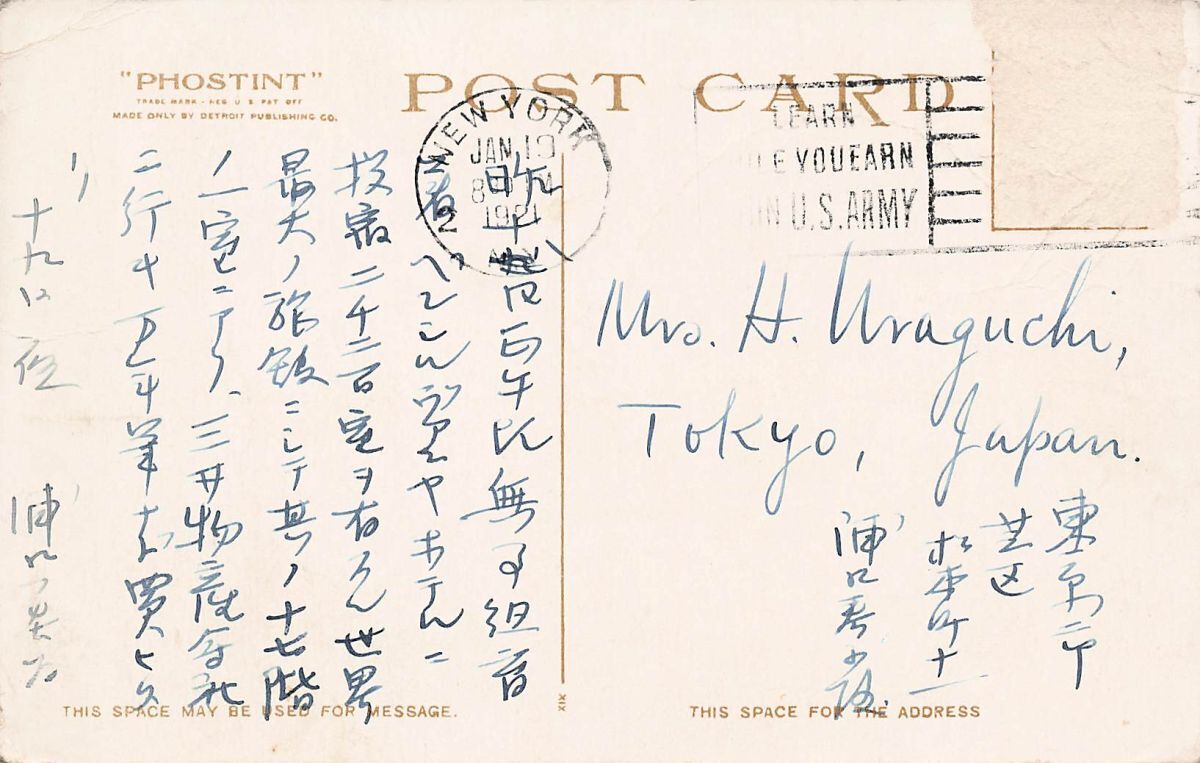 "PHOSTINT"
TRADE MARK - REG U S PAT OFF
MADE ONLY BY DETROIT PUBLISHING CO.
POST CARD
NEW YORK
JAN 19
1921
N.Y.
LEARN
YOU EARN
IN U.S. ARMY
Mrs. H. Uraguchi,
Tokyo, Japan.
東京市
芝区
松本町十一
浦口
正午此無事紐育
ペンシルヴニヤホテルニ
投宿二千二百室ヲ有スル世界
最大ノ旅館ニシテ其ノ十七階
ノ一室ニアリ、三井物産会社
ニ行キ万年筆ヲ買ヒ
十九日夜
浦口
THIS SPACE MAY BE USED FOR MESSAGE.
XIX
THIS SPACE FOR THE ADDRESS